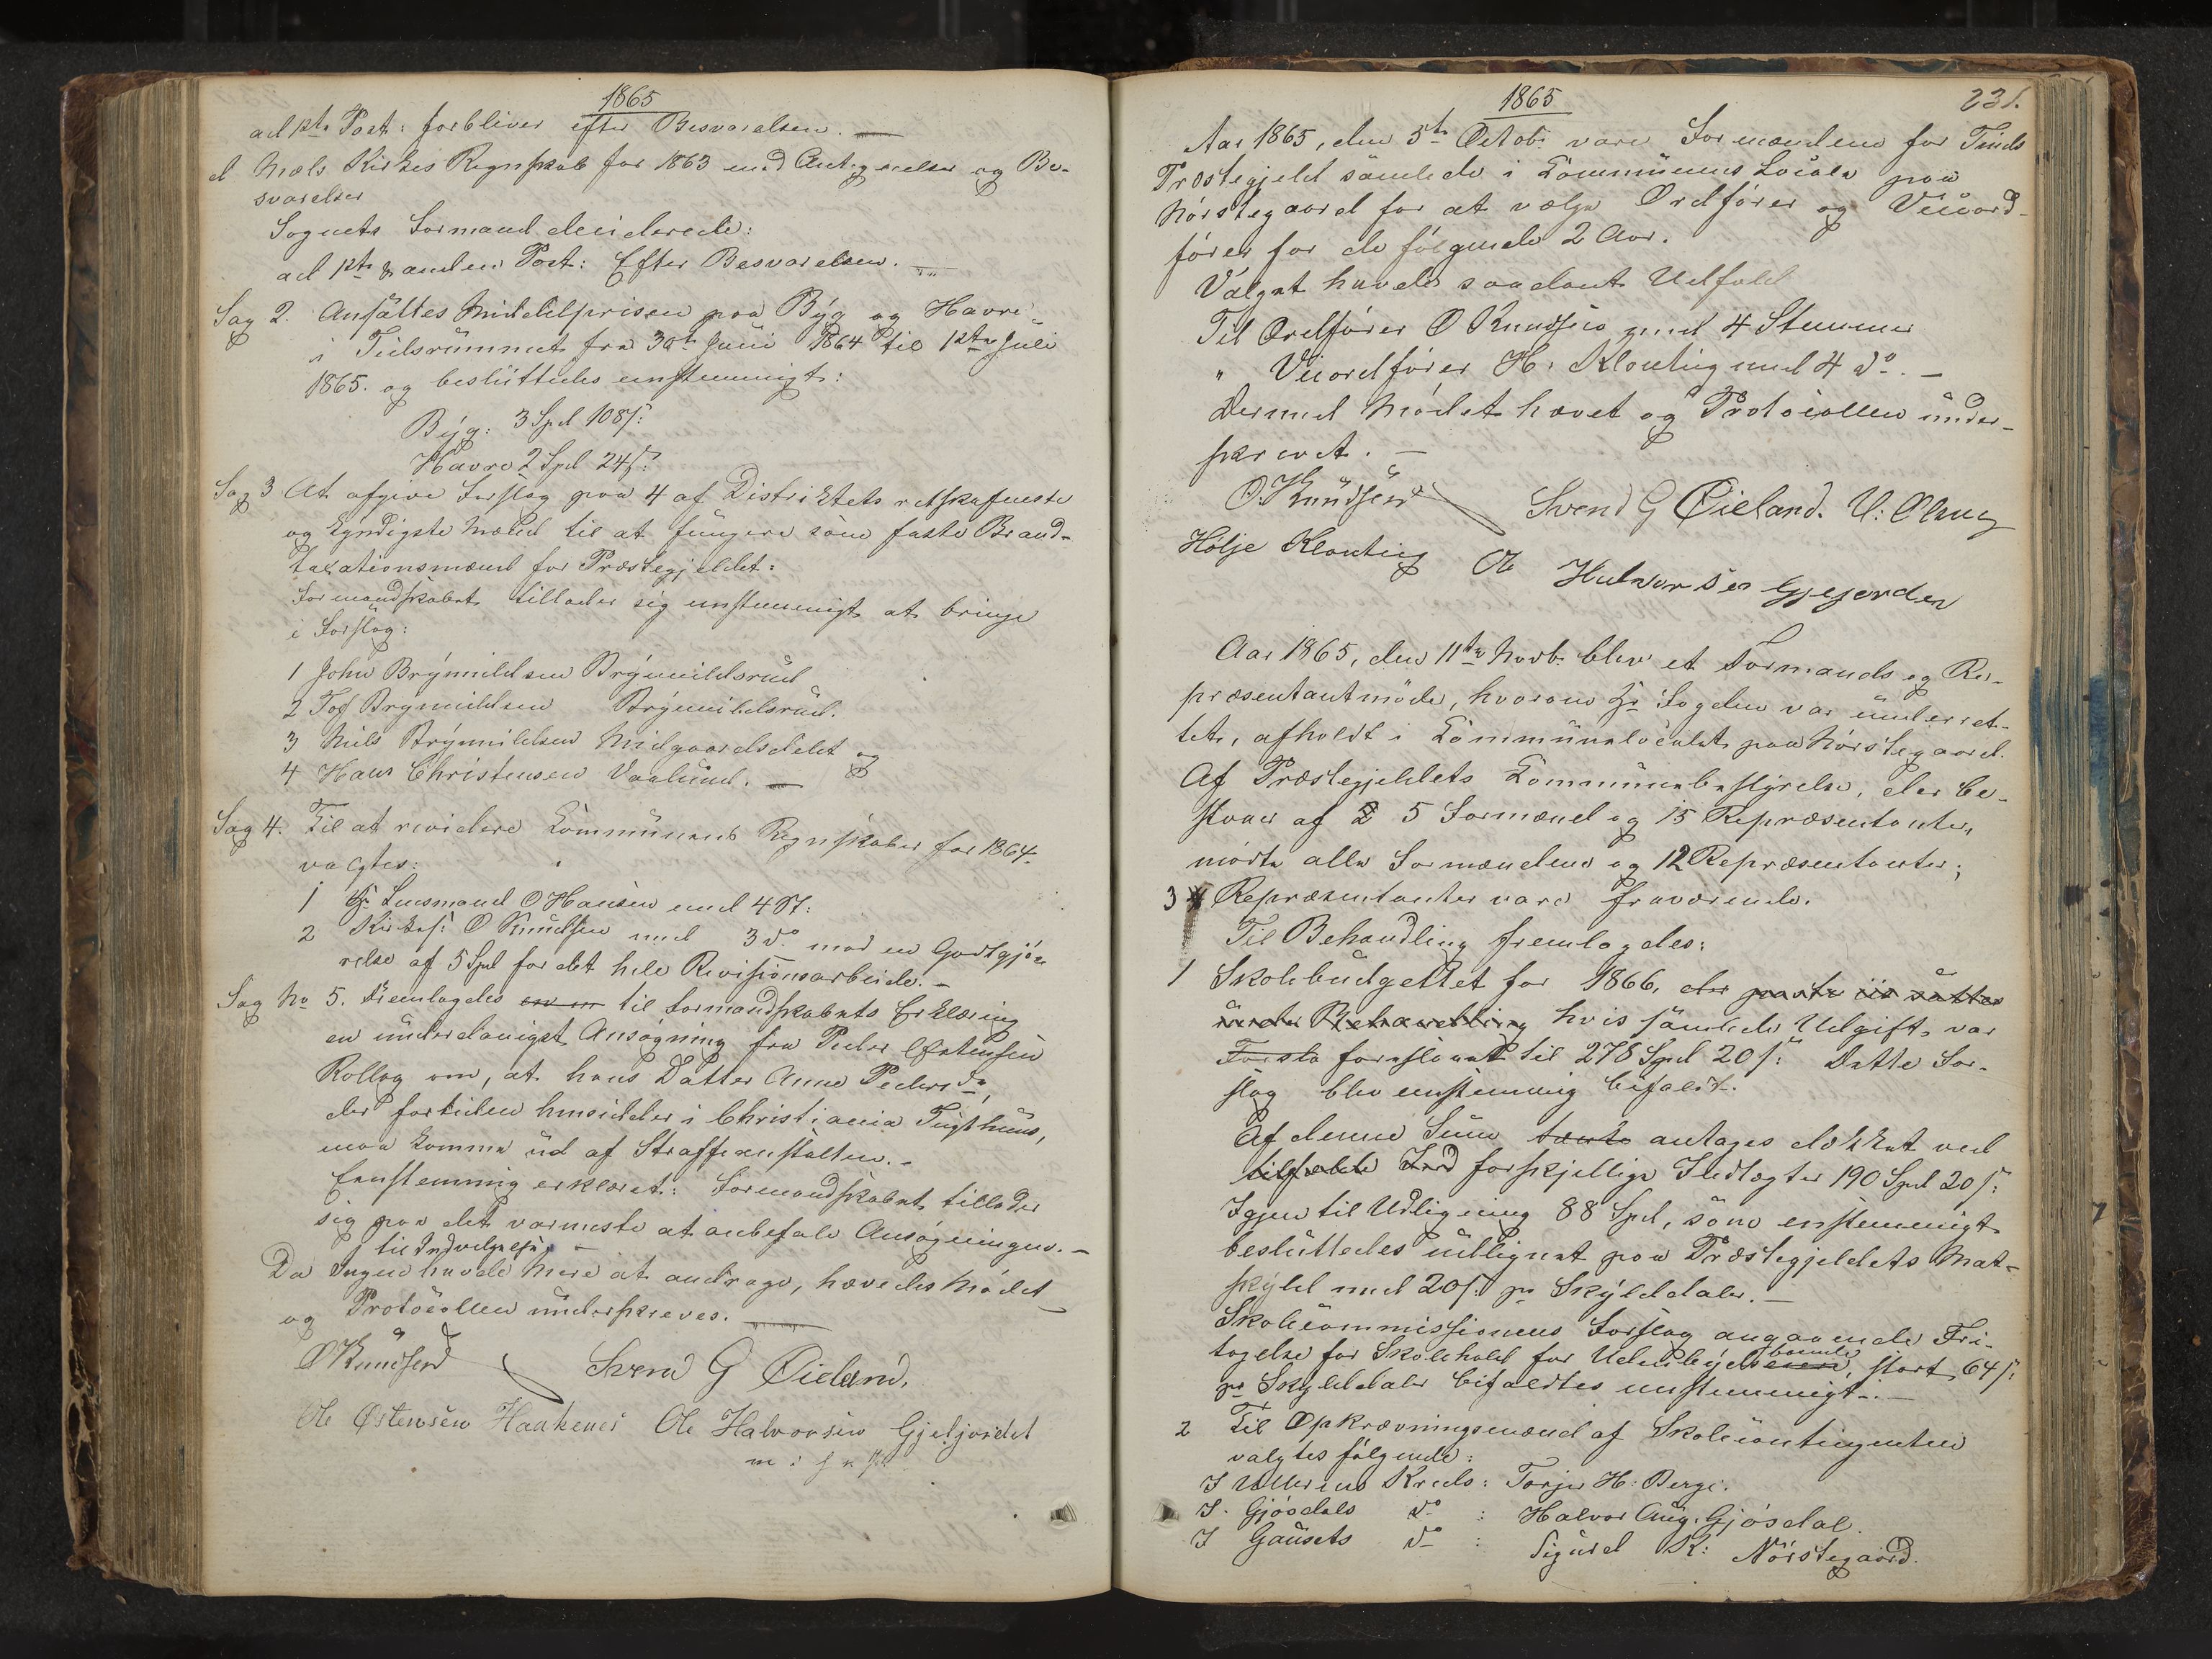 1865
ad 1ste Post: forbliver efter Besvarelsen. —
d Mæls Kirkes Regnskab for 1863 med Antegnelser og Be-
svarelser
Sognets Formand deciderede:
ad 1ste & anden Post: Efter Besvarelsen. —
Sag 2. Ansattes Middelprisen paa Byg og Havre
i Tidsrummet fra 30te Juni 1864 til 1ste Juli
1865. og besluttedes eenstemmigt:
Byg: 3 Spd 108 s:
Havre 2 Spd 24 s:
Sag 3 At afgive Forslag paa 4 af Distriktets retskafneste
og kyndigste Mænd til at fungere som faste Brand-
taxationsmænd for Præstegjeldet:
Formandskabet tillader sig eenstemmigt at bringe
i Forslag:
1 John Brynildsen Brynildsrud
2 Tof Brynildsen Brynildsrud.
3 Niels Brynildsen Midgaardsdelet og
4 Hans Christensen Vaalund. —
Sag 4. Til at revidere Communens Regnskaber for 1864
valgtes:
1 Hr Lensmand O Hansen med 4 St:
2 Kirkes: O Knudsen med 3 do mod en Godtgjø-
relse af 5 Spd for det hele Revisionsarbeide. —
Sag No 5. Fremlagdes en til Formandskabets Erklæring
en underdanigst Ansøgning fra Peder Østensen
Rollag om, at hans Datter Anne Pedersdr,
der fortiden hensidder i Christiania Tugthuus,
maa komme ud af Straffeanstalten. —
Eenstemmig erklæret: Formandskabet tillader
sig paa det varmeste at anbefale Ansøgningen. —
til Indvilgelse —
Da Ingen havde Mere at andrage, hævedes Mødet
og Protocollen underskreves. —
O Knudsen Svend G Øieland.
Ole Østensen Haakenes Ole Halvorsen Gjeljordet
m: f
1865
231.
Aar 1865, den 5te Octob: vare Formændene for Tinds
Præstegjeld samlede i Communens Locale paa
Nørstegaard for at vælge Ordfører og Viceord-
fører for de følgende 2 Aar.
Valget havde saadant Udfald
Til Ordfører O Knudsen med 4 Stemmer
" Viceordfører H: Klonteig med 4 do. —
Dermed Mødet hævet og Protocollen under-
skrevet. —
O. Knudsen Svend G Øieland. U: Olsen
Hølje Klonteig Ole Halvorsen Gjejorden
Aar 1865, den 11te Novb. blev et Formands og Re-
præsentantmøde, hvorom Hr Fogden var underret-
tet, afholdt i Communelocalet paa Nørstegaard.
Af Præstegjeldets Communebestyrelse, der be-
staaer af 5 Formænd og 15 Repræsentanter,
mødte alle Formændene og 12 Repræsentanter;
3 Repræsentanter vare fraværende.
Til Behandling fremlagdes:
1 Skolebudgettet for 1866, der
under Behandling hvis samlede Udgift var
Forsla foreslaaet til 278 Spd 20 s: Dette For-
slag blev eenstemmig bifaldt.
Af denne Sum antages dækket ved
tilfælde Ind forskjellige Indtægter 190 Spd 20 s:
Igjen til Udligning 88 Spd, som eenstemmigt
besluttedes udlignet paa Præstegjeldets Mat-
skyld med 20 s. pr Skylddaler. —
Skolecommissionens Forslag angaaende Fri-
tagelse for Skolehold for Udenbygdsboende, stort 64 s:
pr Skylddaler bifaldtes eenstemmigt. —
2 Til Opkrævningsmænd af Skolecontingenten
valgtes følgende:
I Kreds: Torjer H: Berge.
I Gjøsdals do : Halvor Aug. Gjøsdal.
I Gausets do : Sigurd K: Nørstegaard.